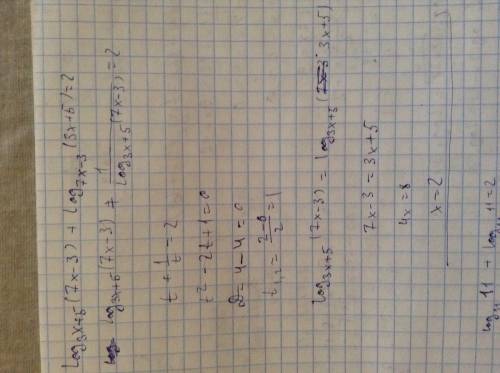 log₃ₓ₊₅(7x-3) + log₇ₓ₋₃(3x+5) = 2
log₃ₓ₊₅(7x-3) + 1/log₃ₓ₊₅(7x-3) = 2
t + 1/t = 2
t² - 2t + 1 = 0
D = 4 - 4 = 0
t₁,₂ = (2-0)/2 = 1
log₃ₓ₊₅(7x-3) = log₃ₓ₊₅(3x+5)
7x-3 = 3x+5
4x = 8
x = 2
log₁₁ 11 + log₁₁ 11 = 2